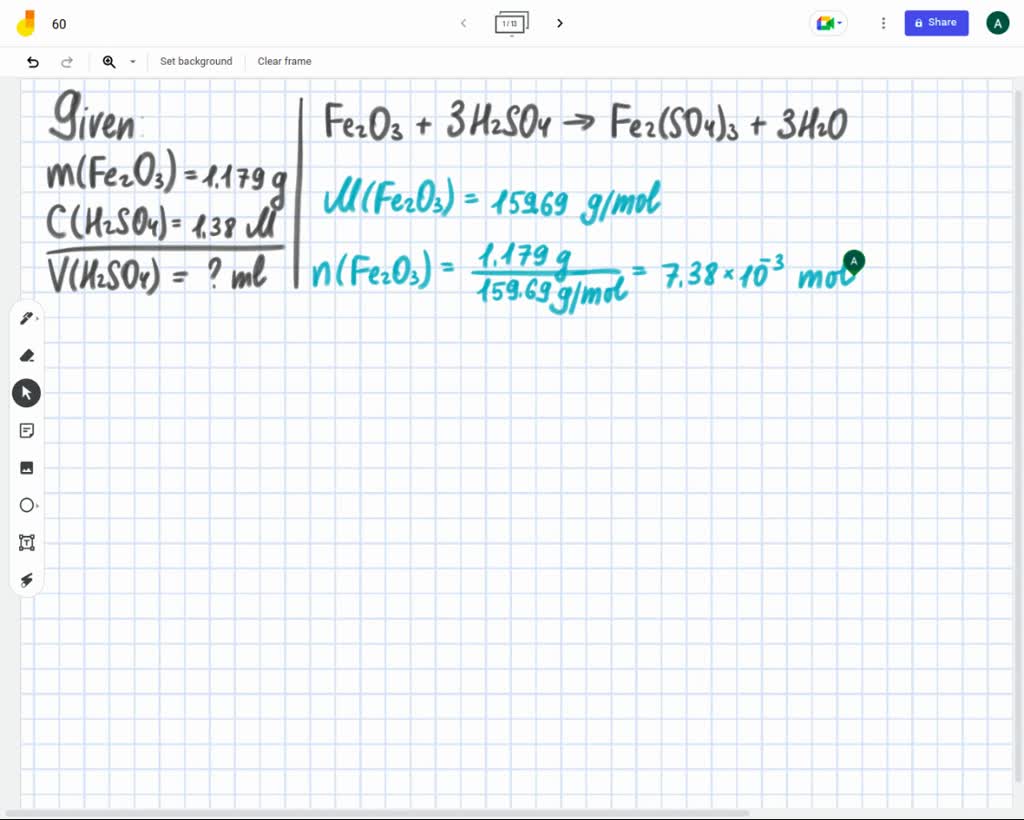 60
1 / 13
Share
A
Set background
Clear frame
Given:
m(Fe₂O₃) = 1.179 g
C(H₂SO₄) = 1.38 M
V(H₂SO₄) = ? ml
Fe₂O₃ + 3H₂SO₄ → Fe₂(SO₄)₃ + 3H₂O
M(Fe₂O₃) = 159.69 g/mol
n(Fe₂O₃) = 1.179 g / 159.69 g/mol = 7.38 × 10⁻³ mol
A